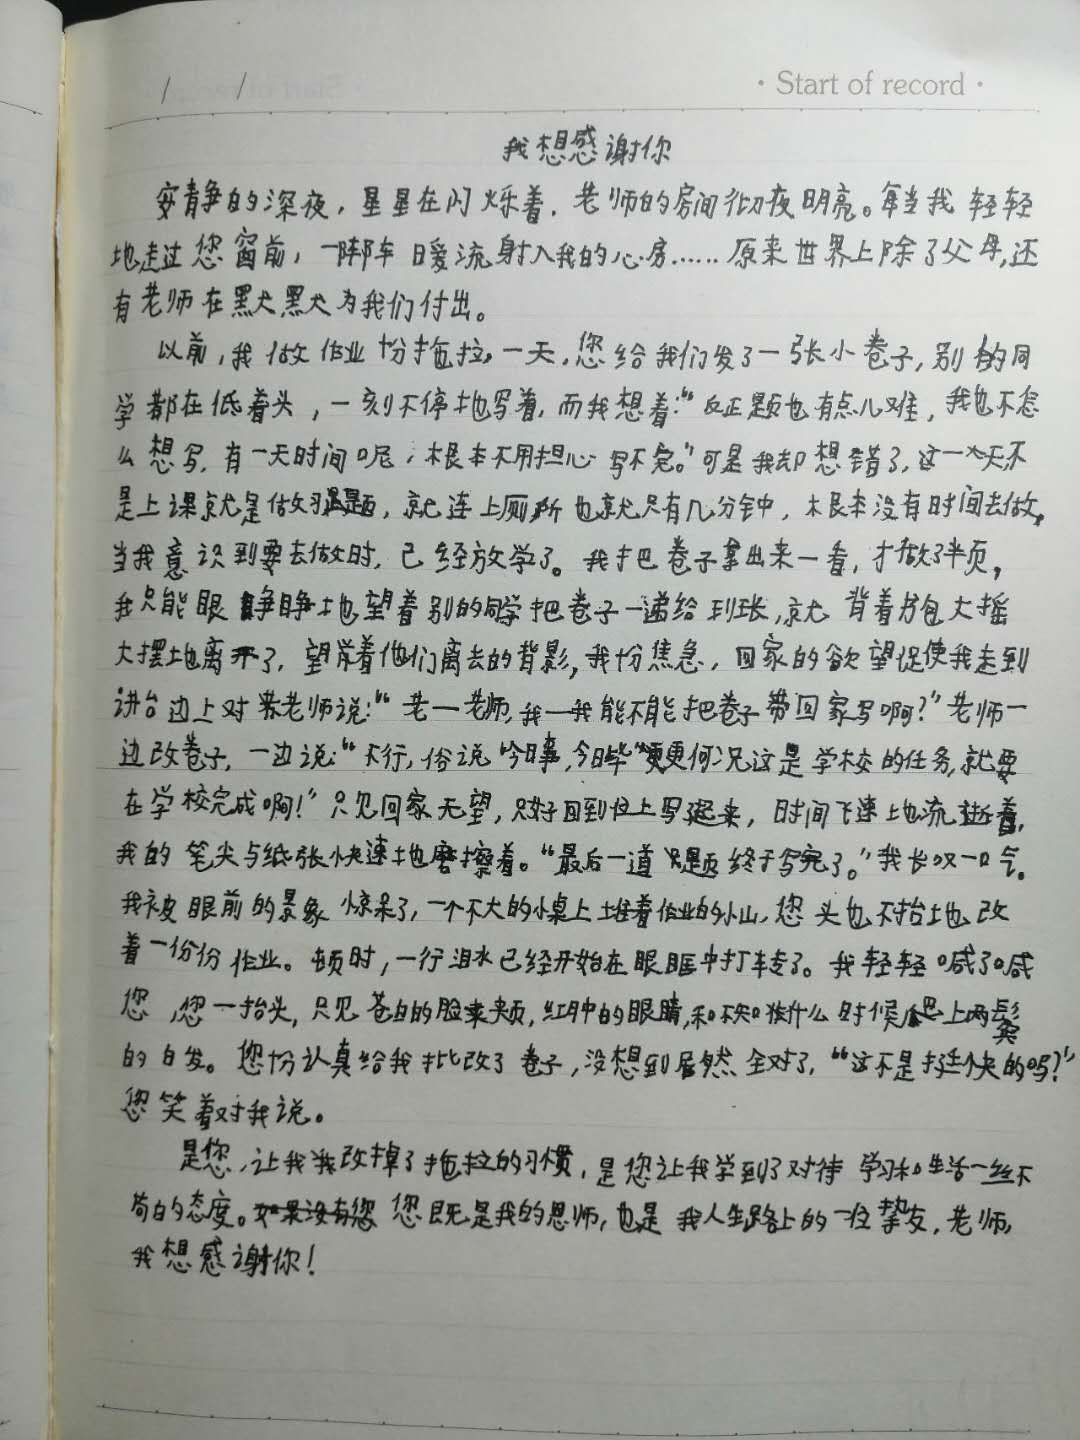 · Start of record ·
我想感谢你
安静的深夜，星星在闪烁着．老师的房间彻夜明亮。每当我轻轻
地走过您窗前，一阵阵暖流射入我的心房……原来世界上除了父母,还
有老师在默默为我们付出。
以前，我做作业十分拖拉，一天，您给我们发了一张小卷子，别的同
学都在低着头，一刻不停地写着，而我想着：“反正题也有点儿难，我也不怎
么想写，有一天时间呢，根本不用担心写不完。”可是我却想错了，这一天不
是上课就是做习题，就连上厕所也就只有几分钟，根本没有时间去做，
当我意识到要去做时，已经放学了。我把卷子拿出来一看，才做了半页，
我只能眼睁睁地望着别的同学把卷子一递给班长,就背着书包大摇
大摆地离开了，望着他们离去的背影，我十分焦急，回家的欲望促使我走到
讲台边上对老师说：“老—老师，我—我能不能把卷子带回家写啊？”老师一
边改卷子，一边说：“不行，俗说“今日事，今日毕”更何况这是学校的任务，就要
在学校完成啊！”只见回家无望，只好回到位上写起来，时间飞速地流逝着，
我的笔尖与纸张快速地磨擦着。“最后一道题终于写完了。”我长叹一口气。
我被眼前的景象惊呆了，一个不大的小桌上堆着作业的小山，您头也不抬地改
着一份份作业。顿时，一行泪水已经开始在眼眶中打转了。我轻轻喊了喊
您，您一抬头，只见苍白的脸颊，红肿的眼睛，和不知什么时候爬上两鬓
的白发。您十分认真给我批改了卷子，没想到居然全对了，“这不是挺快的吗？”
您笑着对我说。
是您，让我改掉了拖拉的习惯，是您让我学到了对待学习和生活一丝不
苟的态度。您既是我的恩师，也是我人生路上的一位挚友，老师，
我想感谢你！